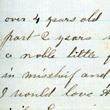 over 4 years old
part 2 years
a noble little
in mischief and
I would love